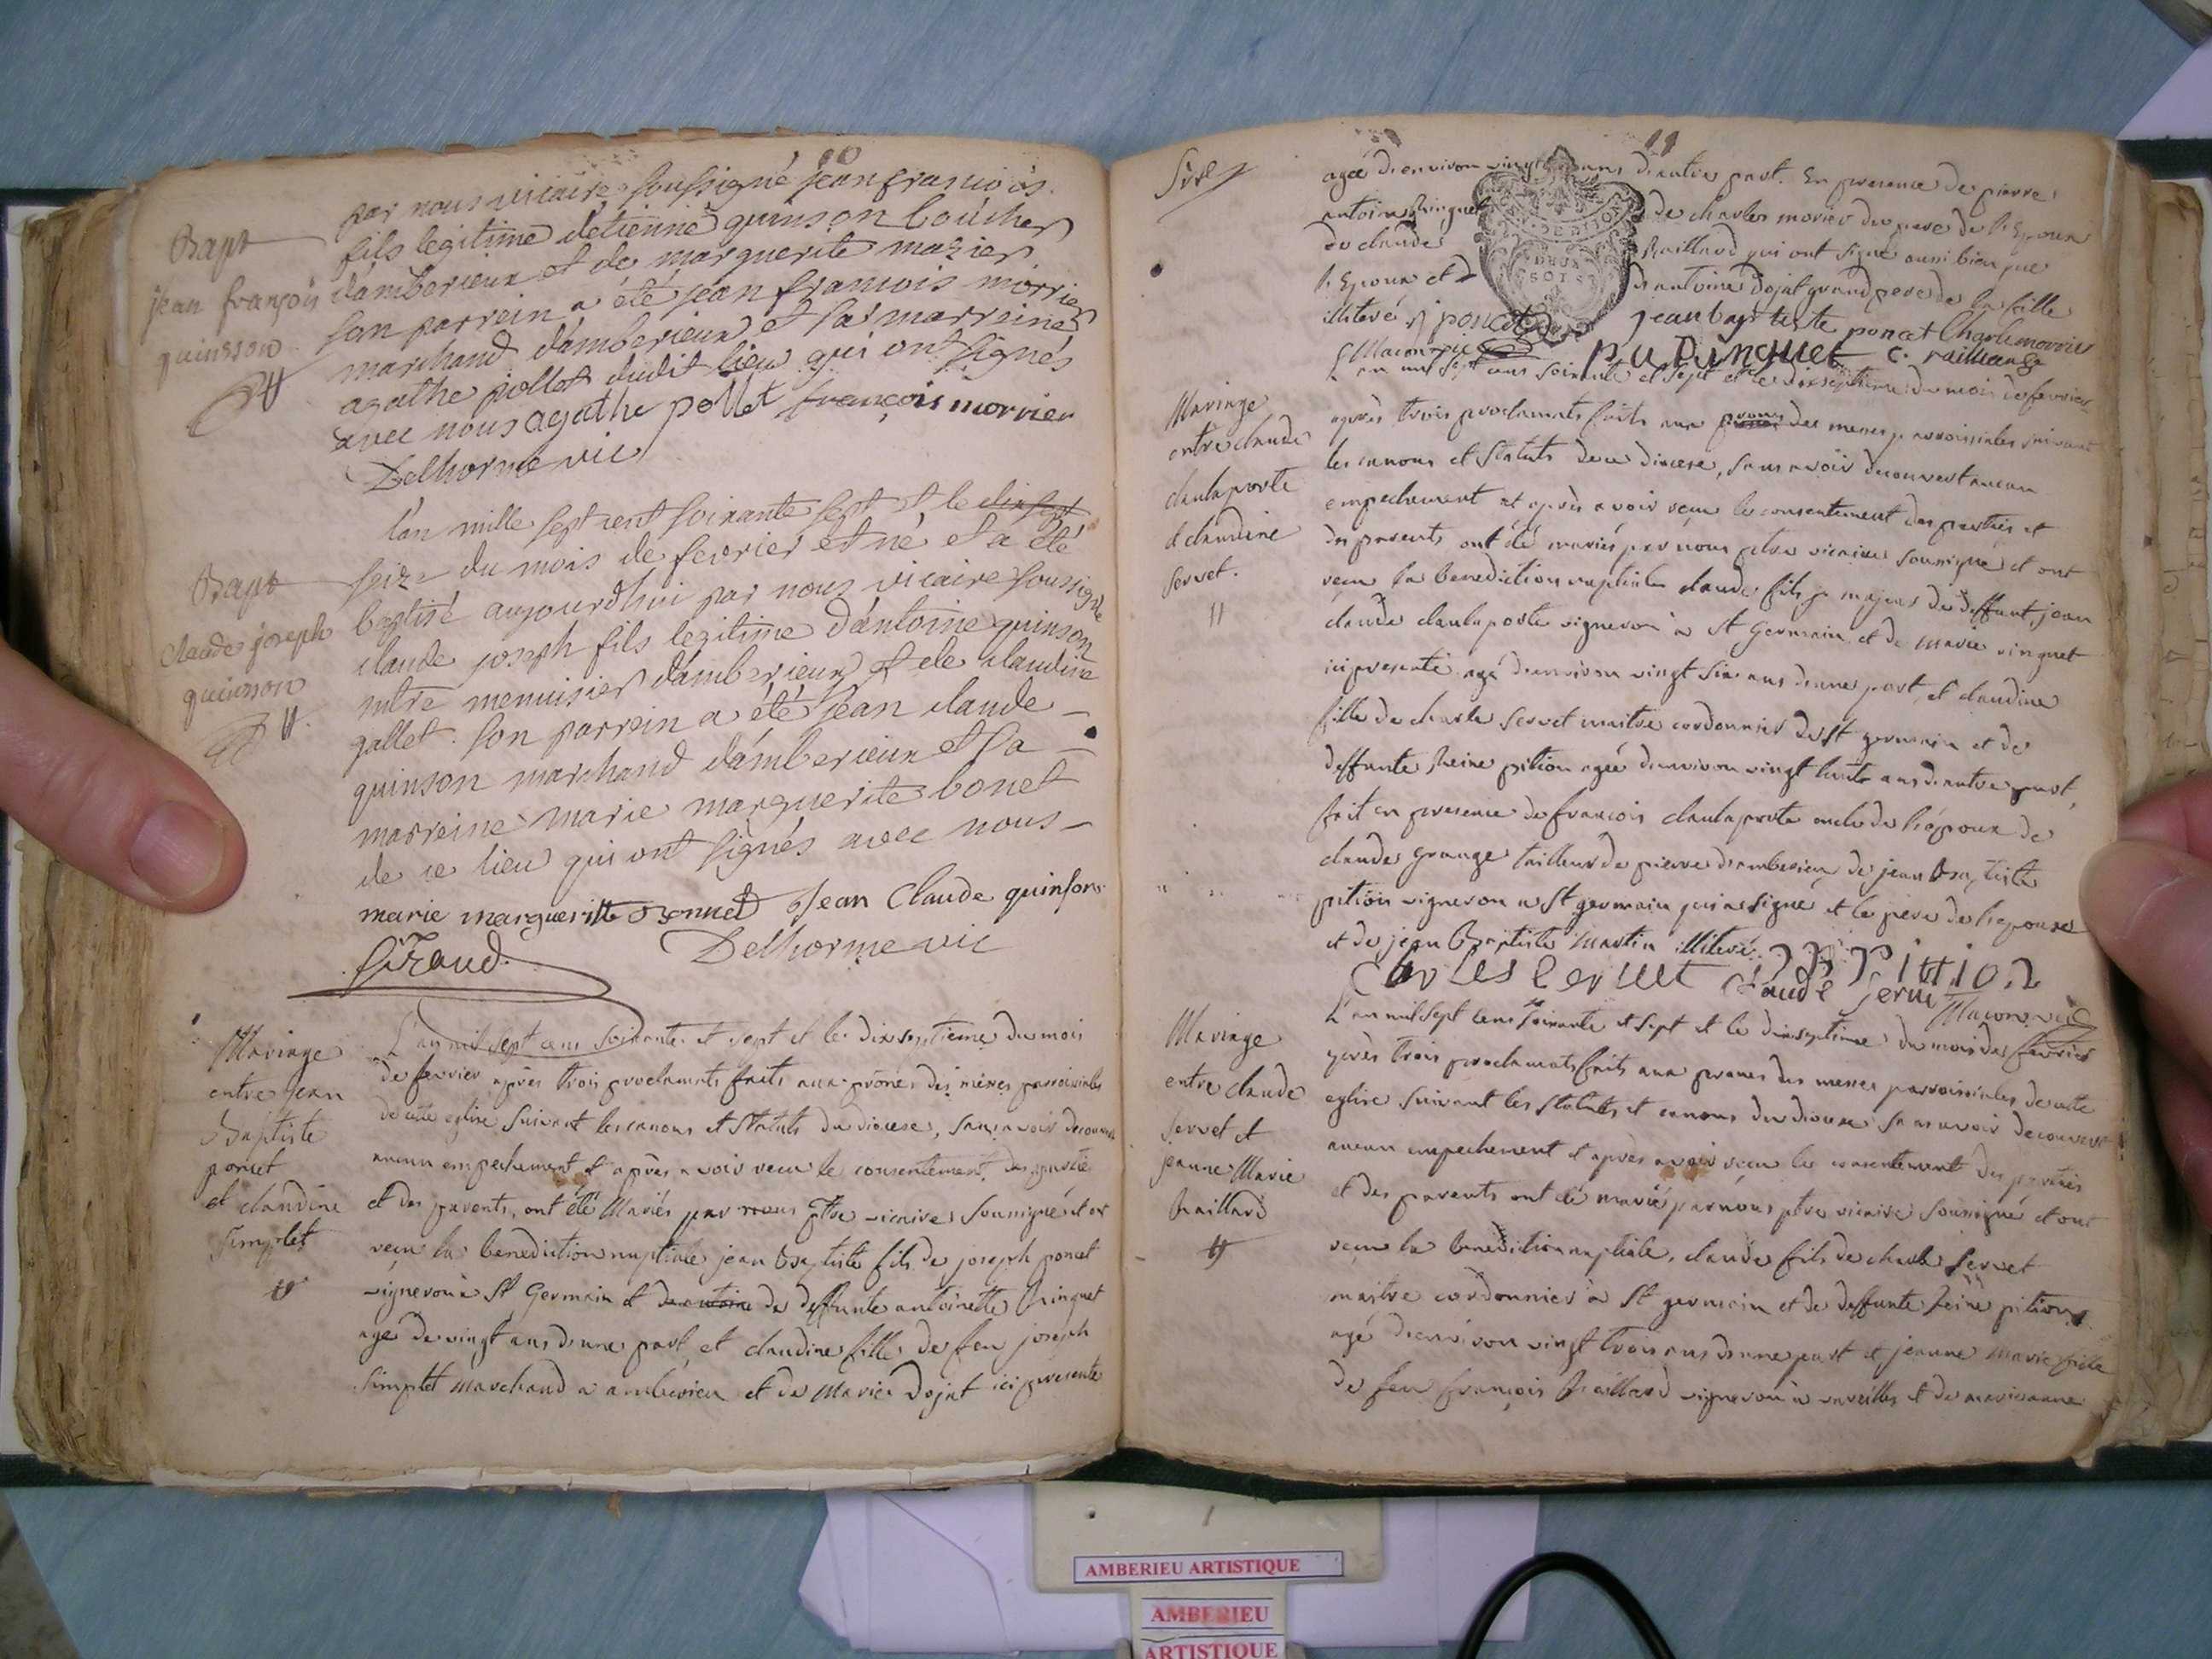 10
par nous vicaire soussigné jean francois
Bapt
jean françois
quinsson
fils legitime detienne quinson boucher
d'amberieux et de marguerite mazier
son parrein a été jean francois morrier
marchand d'amberieux et sa marreine
agathe pollet dudit lieu qui ont signés
avec nous agathe pollet françois morrier
Delhorme vic
l'an mille sept cent soixante sept et le dix sept
seize du mois de fevrier est né et a été
Bapt
claude joseph
quinsson
baptisé aujourdhui par nous vicaire soussigné
claude joseph fils legitime d'antoine quinson
mtre menuisier d'amberieux et de claudine
gallet. son parrein a été jean claude
quinson marchand d'amberieux et sa
marreine marie marguerite bonet
de ce lieu qui ont signés avec nous
marie margueritte Bonnet Jean Claude quinson
Giraud. Delhorme vic
Mariage
entre jean
Baptiste
poncet
et claudine
simplet
L'an mil sept cens soixante et sept et le dixseptieme du mois
de fevrier après trois proclamats faits aux prônes des messes parroissiales
de cette eglise suivant les canons et statuts du diocese, sans avoir decouvert
aucun empechement et après avoir recu le consentement des parties
et des parents, ont été Mariés par nous ptre vicaire soussigné et ont
recu la benediction nuptiale jean Baptiste fils de joseph poncet
vigneron à St Germain et de antoine de deffunte antoinette
agé de vingt ans d'une part, et claudine fille de feu joseph
simplet marchand a amberieu et de Marie Dojat ici presente
11
agée d'environ vingt ans d'autre part. En presence de pierre
antoine de charles morier du pere de l'Epoux
de claude Raillard qui ont signé aussi bien que
l'Epoux et d antoine Dojat grand pere de la fille
illiteré J poncet jean baptiste poncet Charle morrier
Macon vic c. raillard
L'an mil sept cens soixante et sept et le dixseptieme du mois de fevrier
Mariage
entre claude
claulaporte
et claudine
servet.
après trois proclamats faits aux prones des messes parroissiales suivant
les canons et statuts de ce diocese, sans avoir decouvert aucun
empechement et après avoir recu le consentement des parties et
des parents ont été mariés par nous ptre vicaire soussigné et ont
recu la benediction nuptiale claude fils majeur de deffunt jean
claude claulaporte vigneron à St Germain et de marie
ici presente agé d'environ vingt six ans d'une part, et claudine
fille de charle servet maitre cordonnier de St germain et de
deffunte Reine pition agée d'environ vingt huit ans d'autre part,
fait en presence de francois claulaporte oncle de l'époux de
claude grange tailleur de pierre d'amberieu de jean Baptiste
pition vigneron a St germain qui a signé et le pere de l'epouse
et de jean Baptiste Martin illiteré.
Claude servet
Macon vic
L'an mil sept cens soixante et sept et le dixseptieme du mois de fevrier
Mariage
entre claude
servet et
jeanne Marie
Raillard
après trois proclamats faits aux prones des messes parroissiales de cette
eglise suivant les statuts et canons du diocese sans avoir decouvert
aucun empechement et après avoir recu le consentement des parties
et des parents ont été mariés par nous ptre vicaire soussigné et ont
recu la benediction nuptiale, claude fils de charle servet
maitre cordonnier à St germain et de deffunte Reine pition
agé d'environ vingt trois ans d'une part et jeanne Marie fille
de feu francois Raillard vigneron à vareilles et de marieanne
AMBERIEU ARTISTIQUE
AMBERIEU
ARTISTIQUE